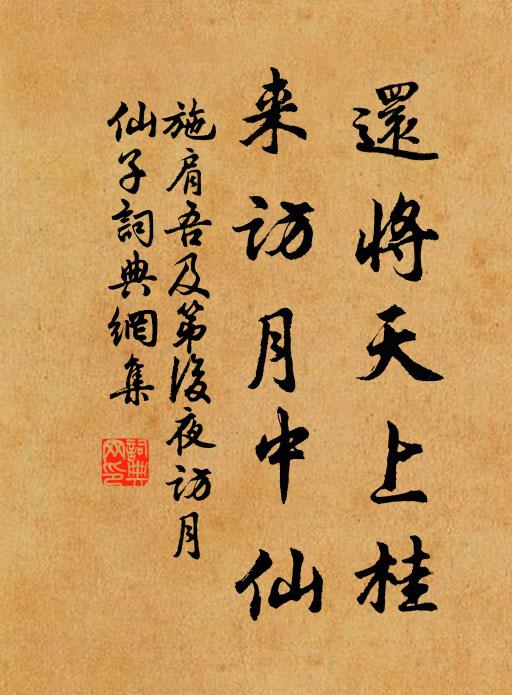 還將天上桂
来訪月中仙
施肩吾及第後夜訪月
仙子詞典網集
詞典
网印